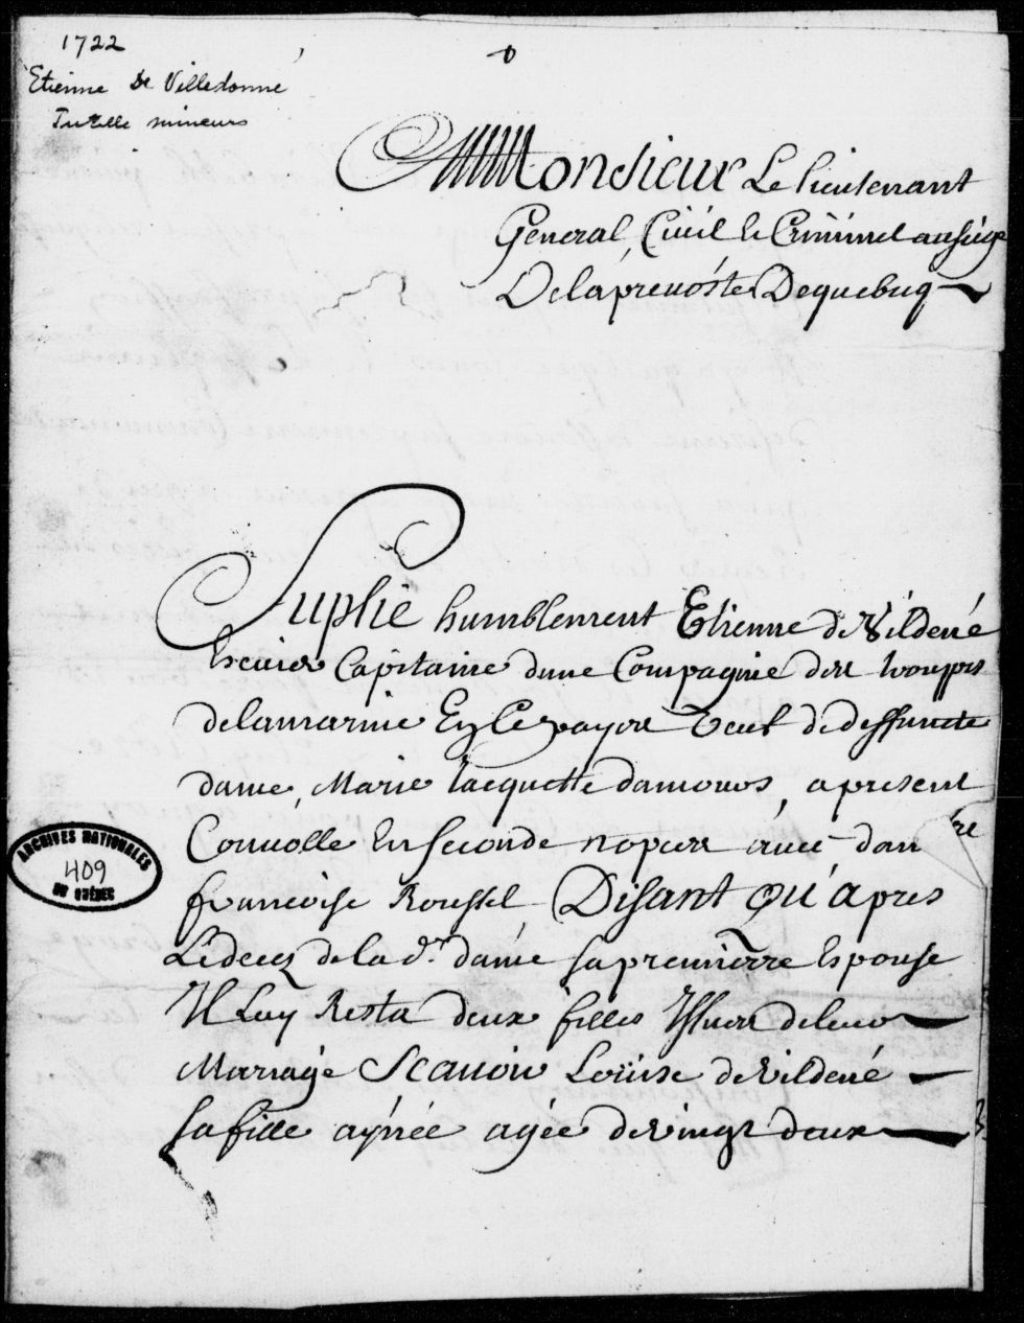 1722
Etienne De Villedonné
Tutelle mineurs
A Monsieur Le lieutenant
General, Civil & Criminel au siege
De la prevosté De quebecq
Suplie humblement Etienne de Vildené
Escuier Capitaine dune Compagnie des trouppes
de la marine En Ce payis veuf de deffuncte
dame, Marie Jacquette damours, apresent
Convolle En seconde nopces avec dam re
francoise Roussel Disant Qu'apres
Le deces de la d.e dame sa premierre Espouse
Il Luy Resta deux filles Issues de leur
Mariage Scauoir Loüise de Vildené
sa fille aynée agée de vingt deux
ARCHIVES NATIONALES
409
DU QUÉBEC